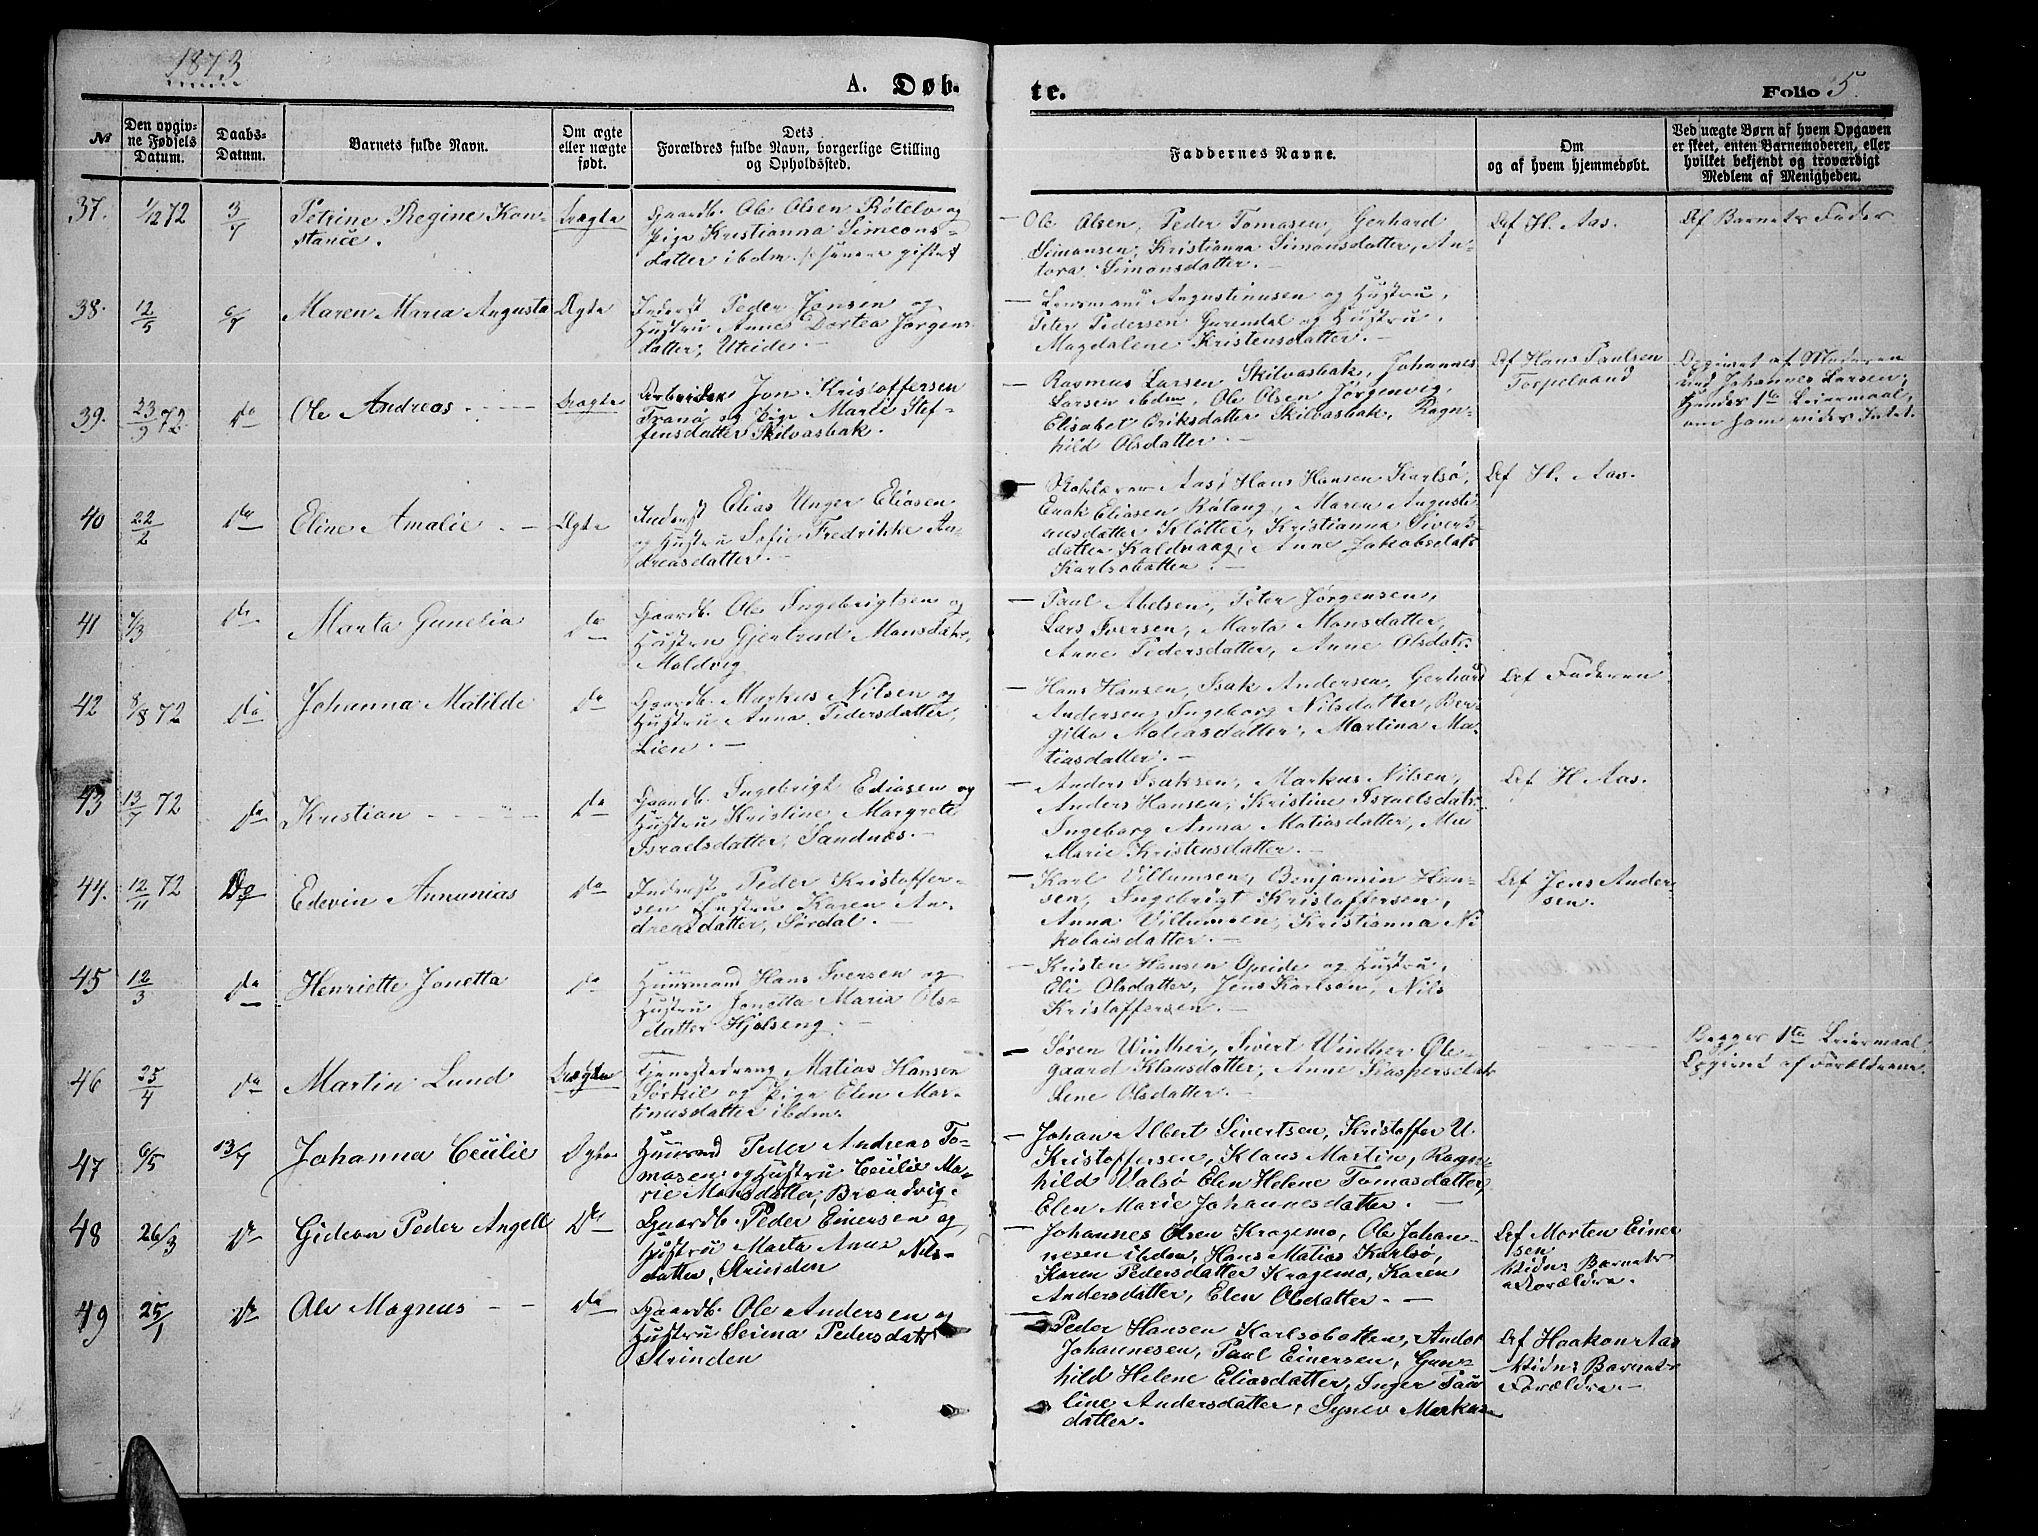 1873
A. Døb-
te.
Folio 5.
№
Den opgiv-
ne Fødsels
Datum.
Daabs-
Datum.
Barnets fulde Navn.
Om ægte
eller uægte
født.
Dets
Forældres fulde Navn, borgerlige Stilling
og Opholdssted.
Faddernes Navne.
Om
og af hvem hjemmedøbt.
Ved uægte Børn af hvem Opgaven
er skeet, enten Barnemoderen, eller
hvilket bekjendt og troværdigt
Medlem af Menigheden.
37.
1/12 72
3/7
Petrine Regine Kon-
stance.
Uægte
Gaardb. Ole Olsen Røtelv og
Pige Kristianna Simeons-
datter ibdm.
Ole Olsen, Peder Tomasen, Gerhard
Simonsen, Kristianna Simonsdatter, An-
tora Simonsdatter. —
Af H. Aas.
Af Barnets Fader
38.
12/5
6/7
Maren Maria Augusta
Ægte
Inderst Peder Jonsen og
Hustru Anne Dortea Jørgens-
datter, Uteide. —
— Lensmand Augustinusen og Hustru,
Peter Pedersen Gurendal og Hustru,
Magdalene Kristensdatter. —
39.
23/9 72
Do
Ole Andreas
Uægte
Arbeider Jon Kristoffersen
Tranø og Pige Marie Stef-
fensdatter Skilvasbak.
— Rasmus Larsen Skilvasbak, Johannes
Larsen ibdm, Ole Olsen Jørgenvig,
Elisabet Eriksdatter Skilvasbak, Ragn-
hild Olsdatter. —
Af Hans Paulsen
Torpelvand
Opgivet af Moderen
ved Johannes Larsen;
Hendes 1te Leiermaal,
om ham vides Intet.
40
22/2
Do
Eline Amalie
Ægte
Inderst Elias Unger Eliasen
og Hustru Sofie Fredrikke An-
dreasdatter. —
Aas, Hans Hansen Karlsø,
Enok Eliasen Røtang, Maren Augusti-
nusdatter Kløtter, Kristianna Siverts-
datter Kaldvaag, Anne Jakobsdatr
Karlsobatten. —
Af H. Aas.
41
1/3
Do
Marta Gunelia
Do
Gaardb. Ole Ingebrigtsen og
Hustru Gjertrud Monsdatr,
Moldvig
— Paul Abelsen, Peter Jørgensen,
Lars Iversen, Marta Monsdatter,
Anne Pedersdatter, Anne Olsdatr.
42
8/8 72
Do
Johanna Matilde
Do
Gaardb. Markus Nilsen og
Hustru Anna Pedersdatter,
Lien. —
— Hans Hansen, Isak Andersen, Gerhard
Andersen, Ingeborg Nilsdatter, Ber-
gitta Matiasdatter, Martina Ma-
tiasdatter. —
Af Faderen
43
13/7 72
Do
Kristian
Do
Gaardb. Ingebrigt Eliasen og
Hustru Kristine Margrete
Israelsdatter, Sandnæs. —
— Anders Isaksen, Markus Nilsen,
Anders Hansen, Kristine Israelsdatr
Ingeborg Anna Matiasdatter,
Marie Kristensdatter. —
Af H. Aas.
44.
12/11 72
Do
Edevin Annanias
Do
Inderst Peder Kristoffer-
sen Hustru Karen An-
dreasdatter, Sørdal. —
— Karl Villumsen, Benjamin Han-
sen, Ingebrigt Kristoffersen,
Anna Villumsen, Kristianna Ni-
kolaisdatter. —
Af Jens Ander-
sen.
45
12/3
Do
Henriette Jonetta
Do
Huusmand Hans Iversen og
Hustru Jonetta Maria Ols-
datter Hjelseng. —
— Kristen Hansen Opeide og Hustru,
Eli Olsdatter, Jens Karlson, Nils
Kristoffersen. —
46
25/4
Do
Martin Lund
Uægte
Tjenestedreng Matias Hansen
Sørkil og Pige Elen Mar-
tinusdatter ibdm.
— Søren Winther, Sivert Winther Ole-
gaard Klausdatter, Anne Kaspersdatr
Lene Olsdatter. —
Begges 1te Leiermaal.
Opgivet af Forældrene.
47
6/5
13/7
Johanna Cecilie
Ægte
Huusmd Peder Andreas To-
masen og Hustru Cecilie Ma-
rie Monsdatter, Brændvig.
— Johan Albert Sivertsen, Kristoffer U.
Kristoffersen, Klaus Martin, Ragn-
hild Valsø Elen Helene Tomasdatter,
Elen Marie Johannesdatter. —
48
26/3
Do
Gideon Peder Angell
Do
Gaardb. Peder Einersen og
Hustru Marta Anna Nils-
datter, Strinden
— Johannes Olsen Kragemo, Ole Johan-
nesen ibdm, Hans Matias Karlsø,
Karen Pedersdatter Kragemo, Karen
Andersdatter, Elen Olsdatter. —
Af Morten Einer
sen.
Vidn: Barnets
Forældre.
49
25/1
Do
Ole Magnus
Do
Gaardb. Ole Andersen og
Hustru Serina Pedersdatr
Strinden
Peder Hansen Karlsobatten, Andor
Johannesen, Paul Einersen, Gun-
hild Helene Eliasdatter, Inger Pau
line Andersdatter, Synev Markus-
datter.
Af Haakon Aas
Vidn: Barnets
Forældre. —